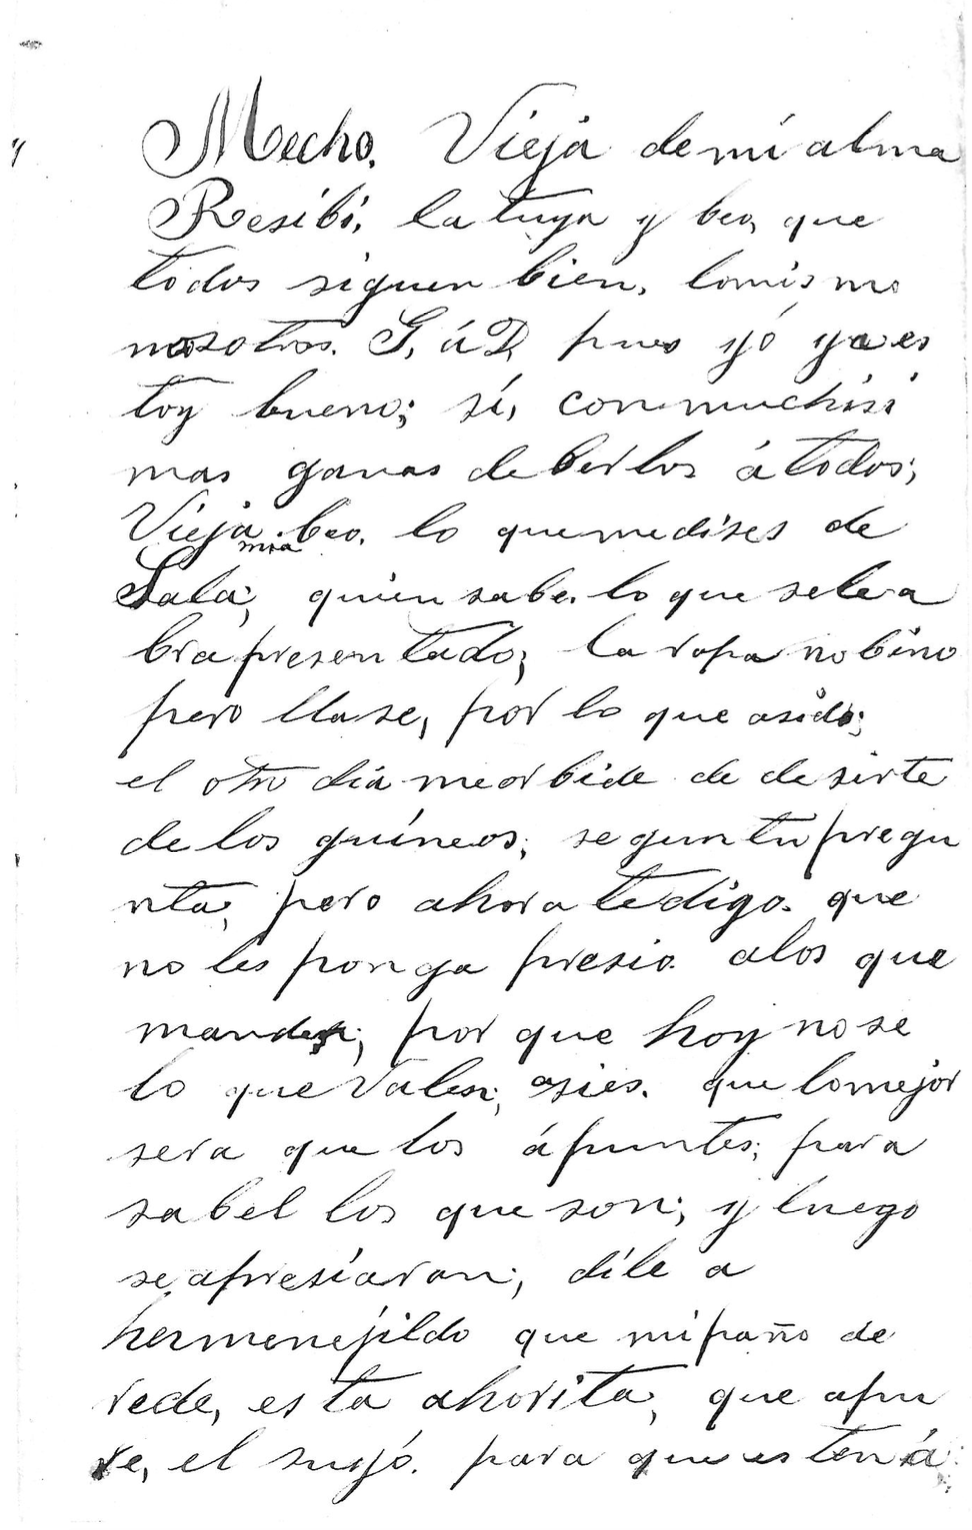 Mecho. Vieja de mi alma
Resibi, la tuya y beo, que
todos siguen bien, lomismo
nosotros. G, á D, pues yó ya es
toy bueno; sí, con muchisi
mas ganas de berlos á todos;
Vieja mia beo. lo que medises de
Lala; quien sabe. lo que sele a
bra presentado; la ropa no bino
pero llase, por lo que asido;
el otro dia meorbide de desirte
de los guineos; segun tu pregu
nta; pero ahora te digo. que
no les ponga presio. alos que
manden; por que hoy no se
lo que valen; asies. que lomejor
sera que los ápuntes; para
sabel los que son; y luego
se, apresiaran; díle a
hermenejildo que mi paño de
rede, esta ahorita; que apu
re, el suyó. para que esten á